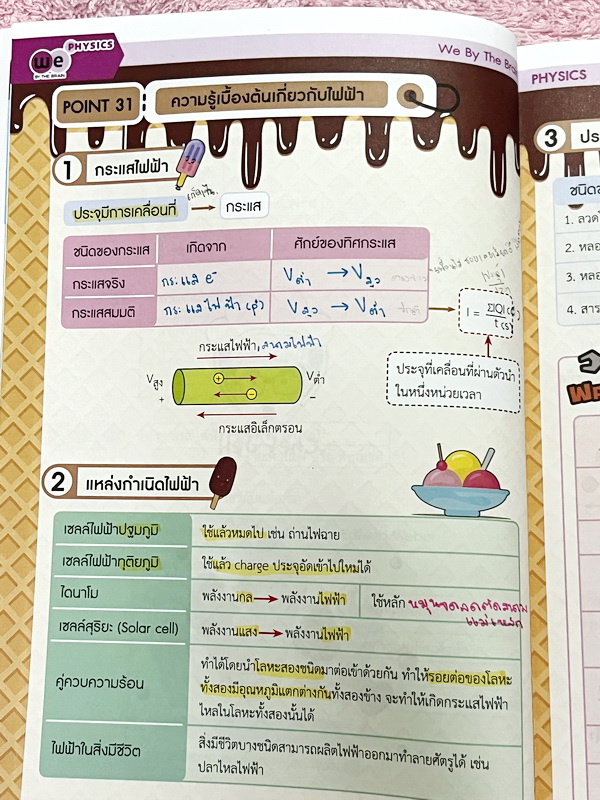 we PHYSICS
BY THE BRAIN
We By The Brain
POINT 31 : ความรู้เบื้องต้นเกี่ยวกับไฟฟ้า
1 กระแสไฟฟ้า
ประจุมีการเคลื่อนที่ → กระแส
ชนิดของกระแส เกิดจาก ศักย์ของทิศกระแส
กระแสจริง กระแส e⁻ Vต่ำ → Vสูง
กระแสสมมติ กระแสไฟฟ้า Vสูง → Vต่ำ
I = Σ|Q|(C) / t (s)
กระแสไฟฟ้า, สนามไฟฟ้า
Vสูง + Vต่ำ −
กระแสอิเล็กตรอน
ประจุที่เคลื่อนที่ผ่านตัวนำ
ในหนึ่งหน่วยเวลา
2 แหล่งกำเนิดไฟฟ้า
เซลล์ไฟฟ้าปฐมภูมิ ใช้แล้วหมดไป เช่น ถ่านไฟฉาย
เซลล์ไฟฟ้าทุติยภูมิ ใช้แล้ว charge ประจุอัดเข้าไปใหม่ได้
ไดนาโม พลังงานกล → พลังงานไฟฟ้า ใช้หลัก หมุนขดลวดตัดสนาม
แม่เหล็ก
เซลล์สุริยะ (Solar cell) พลังงานแสง → พลังงานไฟฟ้า
คู่ควบความร้อน ทำได้โดยนำโลหะสองชนิดมาต่อเข้าด้วยกัน ทำให้รอยต่อของโลหะ
ทั้งสองมีอุณหภูมิแตกต่างกันทั้งสองข้าง จะทำให้เกิดกระแสไฟฟ้า
ไหลในโลหะทั้งสองนั้นได้
ไฟฟ้าในสิ่งมีชีวิต สิ่งมีชีวิตบางชนิดสามารถผลิตไฟฟ้าออกมาทำลายศัตรูได้ เช่น
ปลาไหลไฟฟ้า
PHYSICS
3
1.
2.
3.
4.